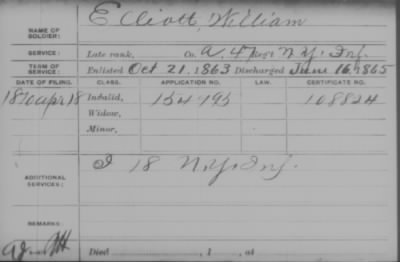 NAME OF SOLDIER: Elliott, William
SERVICE: Late rank, Co. A, 47 Reg't N.Y. Inf.
TERM OF SERVICE: Enlisted Oct 21, 1863 Discharged June 16, 1865
DATE OF FILING. CLASS. APPLICATION NO. LAW. CERTIFICATE NO.
1870 Apr 18 Invalid, 154795 108824
Widow,
Minor,
ADDITIONAL SERVICES: I 18 N.Y. Inf.
REMARKS:
Died , 1 , at